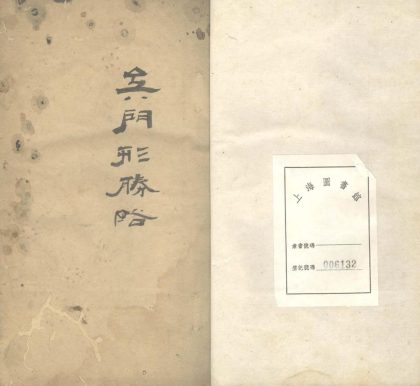 吳門形勝略
上海圖書館
索書號碼
登記號碼 006132